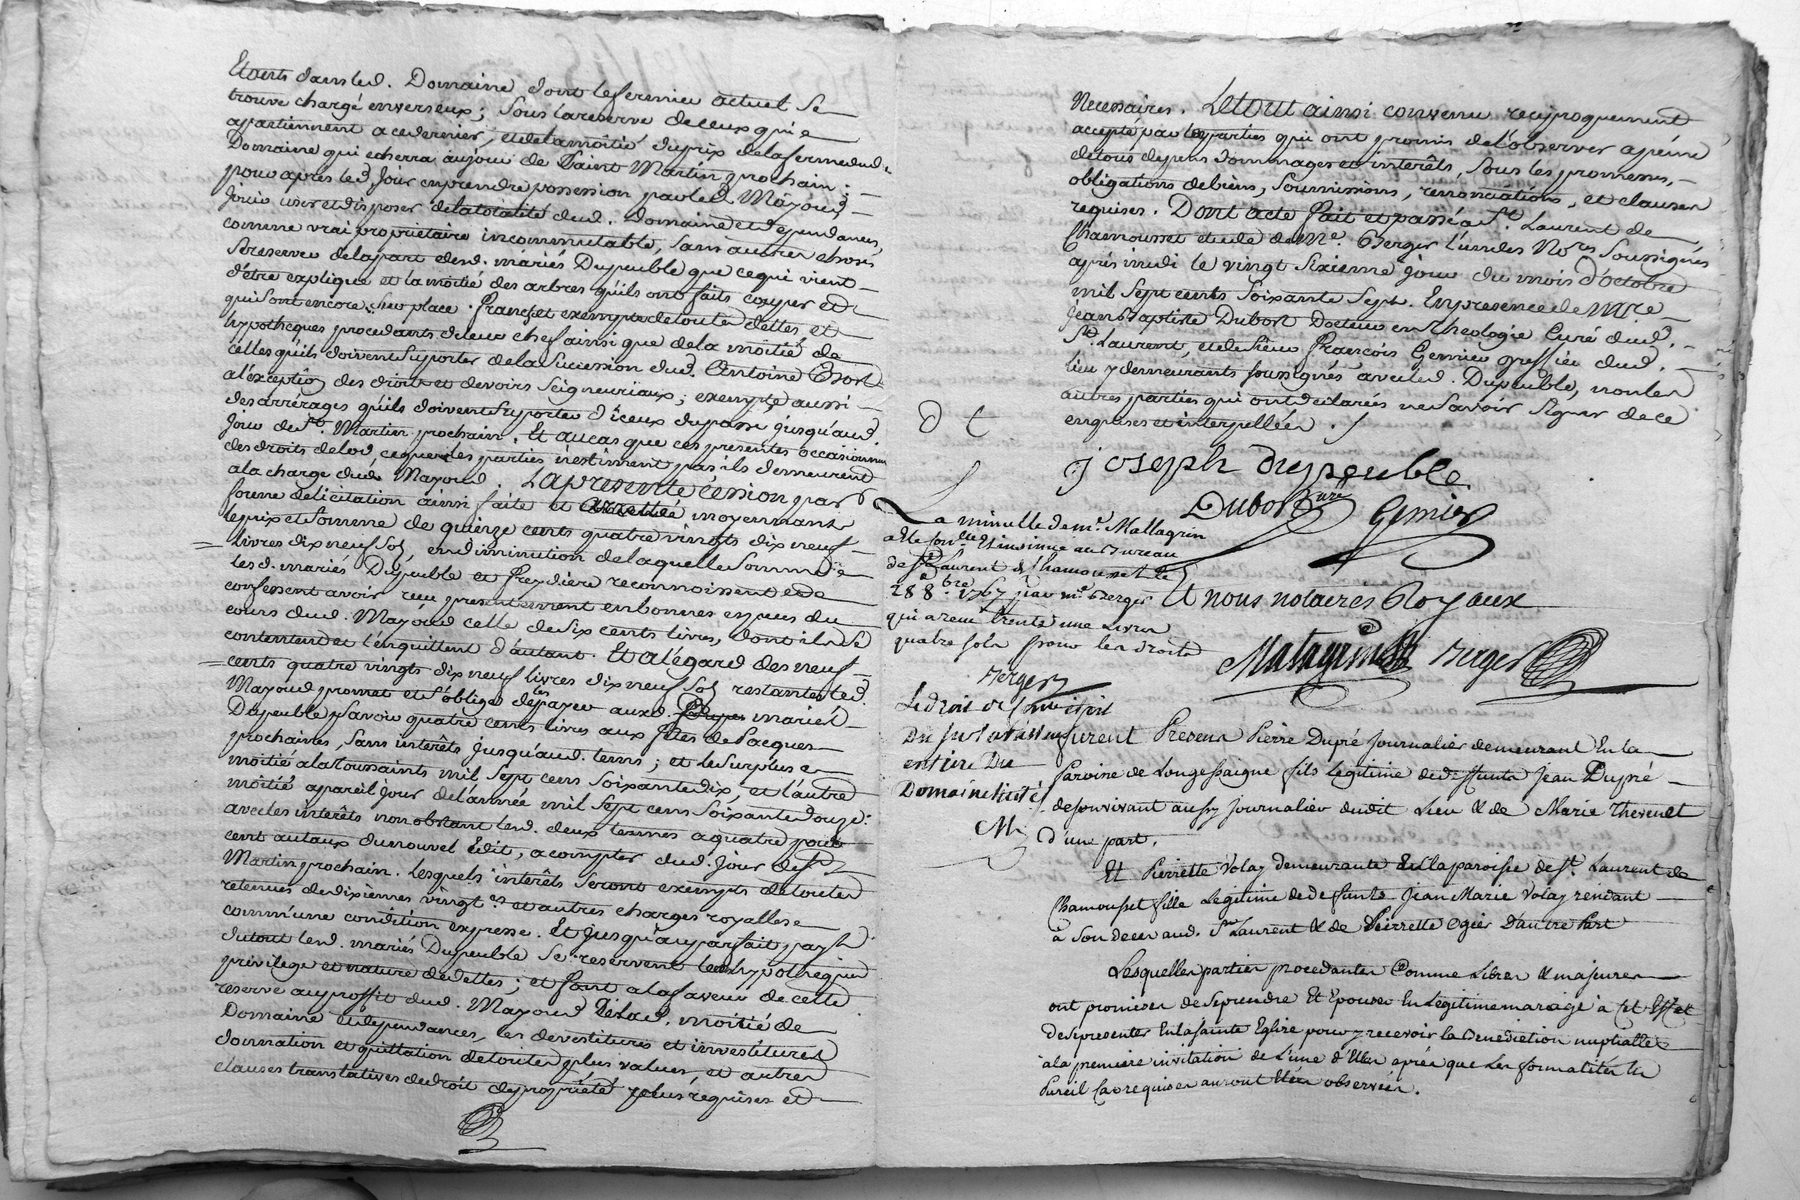 Etants dans led. Domaine dont le fermier actuel Se
trouve chargé enverseux; Sous la reserve de ceux qui
apartiennent a ce dernier, et de la moitié du prix de la ferme dud.
Domaine qui echerra aujour de Saint Martin prochain; —
pour après led. Jour en prendre possession par led. Mayoud —
Jouir user et disposer de la totalité dud. domaine et dependances,
comme vrai proprietaire incommutable, Sans autres choses
Sreserver de la part desd. mariés Dupeuble que ce qui vient —
d'être expliqué et la moitié des arbres qu'ils ont faits couper et
qui sont encore sur place. franc et exempte de toutes dettes et
hypotheques procedants de leur chef ainsi que de la moitié de
celles qu'ils doivent Suporter de la Sucession dud. Antoine
a l'éxception des droits et devoirs Seigneuriaux; exempte aussi —
des arrérages qu'ils doivent Suporter d'iceux du passé jusqu'aud.
Jour de St. Martin prochain. Et au cas que ces presentes occasionnent
des droits de lod, ce que les parties n'estiment pas ils demeurent
a la charge dud. Mayoud. La presente céssion par
forme de licitation ainsi faite et arrestée moyennant
le prix et Somme de quinze cents quatre vingts dix neuf —
livres dix neuf Sol, en diminution de laquelle Somme
lesd. mariés Dupeuble et freydiere reconnoissent et
confessent avoir reçu presentement en bonnes especes du
cours dud. Mayoud celle de Six cents livres, dont ils Se
contentent et l'enquittent d'autant. Et a l'égard des neuf —
cents quatre vingts dix neuf livres dix neuf Sol restantes led.
Mayoud promet et S'oblige de les payer auxd. mariés —
Dupeuble, Savoir quatre cents livres aux fêtes de Pacques —
prochaines, Sans interêts jusqu'aud. tems; et le Surplus
moitié a la toussaints mil Sept cens Soixante dix, et l'autre
moitié a pareil jour de l'année mil Sept cens Soixante douze.
avec les interêts nonobstant lesd. deux termes a quatre pour
cent au taux du nouvel Edit, a compter dud. jour de St
Martin prochain. Lesquels interêts Seront exempts de toutes
retenues de dixièmes vingt.es et autres charges royalles
comm'une condition expresse. Et jusqu'au parfait payt
du tout lesd. mariés Dupeuble Se reservent leur hypotheque
privilege et nature de dettes; et font a la faveur de cette
reserve au proffit dud. Mayoud de lad. moitié de
Domaine et dependances, les devestitures et investitures
donnation et quittation de toutes plus values, et autres
clauses translatives de droit de proprieté plus requises et —
Necessaires. Le tout ainsi convenu reciproquement
accepté par les parties qui ont promis de l'observer apeine
de tous depens dommages et interêts, Sous les promesses, —
obligations de biens, Soumissions, renonciations, et clauses
requises. Dont acte fait et passé a St. Laurent de
Chamousset etude de Me. Berger l'un des Nores Soussignés
apres midi le vingt Sixieme jour du mois d'octobre
mil Sept cents Soixante Sept. En presence de Mre —
Jean Baptiste Dubost Docteur en Theologie Curé dud. —
St. Laurent, et de Sieur François Genier greffier dud. —
lieu y demeurants soussignés avec led. Dupeuble, non les
autres parties qui ont declarées ne Savoir Signer de ce
enquises et interpellées. /
joseph dupeuble
Dubost Curé Genier
La minutte de me. Mattagrin
a été Conllée et insinuée au Bureau
de St Laurent de Chamousset le
28 8bre 1767 par me Berger
qui a recu trente une Livres
quatre sols pour les droits
Berger
Et nous notaires Royaux
Matagrin Berger
Le droit de
Du sur la valleur
entiere Du
Domaine licité
M
furent Presens Pierre Dupré Journalier demeurant En la —
Paroisse de Longessaigne fils legitime de deffunts Jean Dupré —
de son vivant aussy Journalier dudit Lieu & de Marie Thevenet
D'une part.
Et Pierrette Volay demeurante En la paroisse de St. Laurent de
Chamousset fille Legitime de defunts Jean Marie Volay rendant —
a Son deces aud. St Laurent & de Pierrette Ogier D'autre Part
Lesquelles parties procedantes Comme Libres & majeures
ont promises de Seprendre Et Epouser En legitime mariage à Cet Effet
de se presenter En la Sainte Eglise pour y recevoir la Benediction nuptialle
à la premiere invitation de L'une d'Elles après que Les formalités En
Pareil Cas requises auront Etées observées.